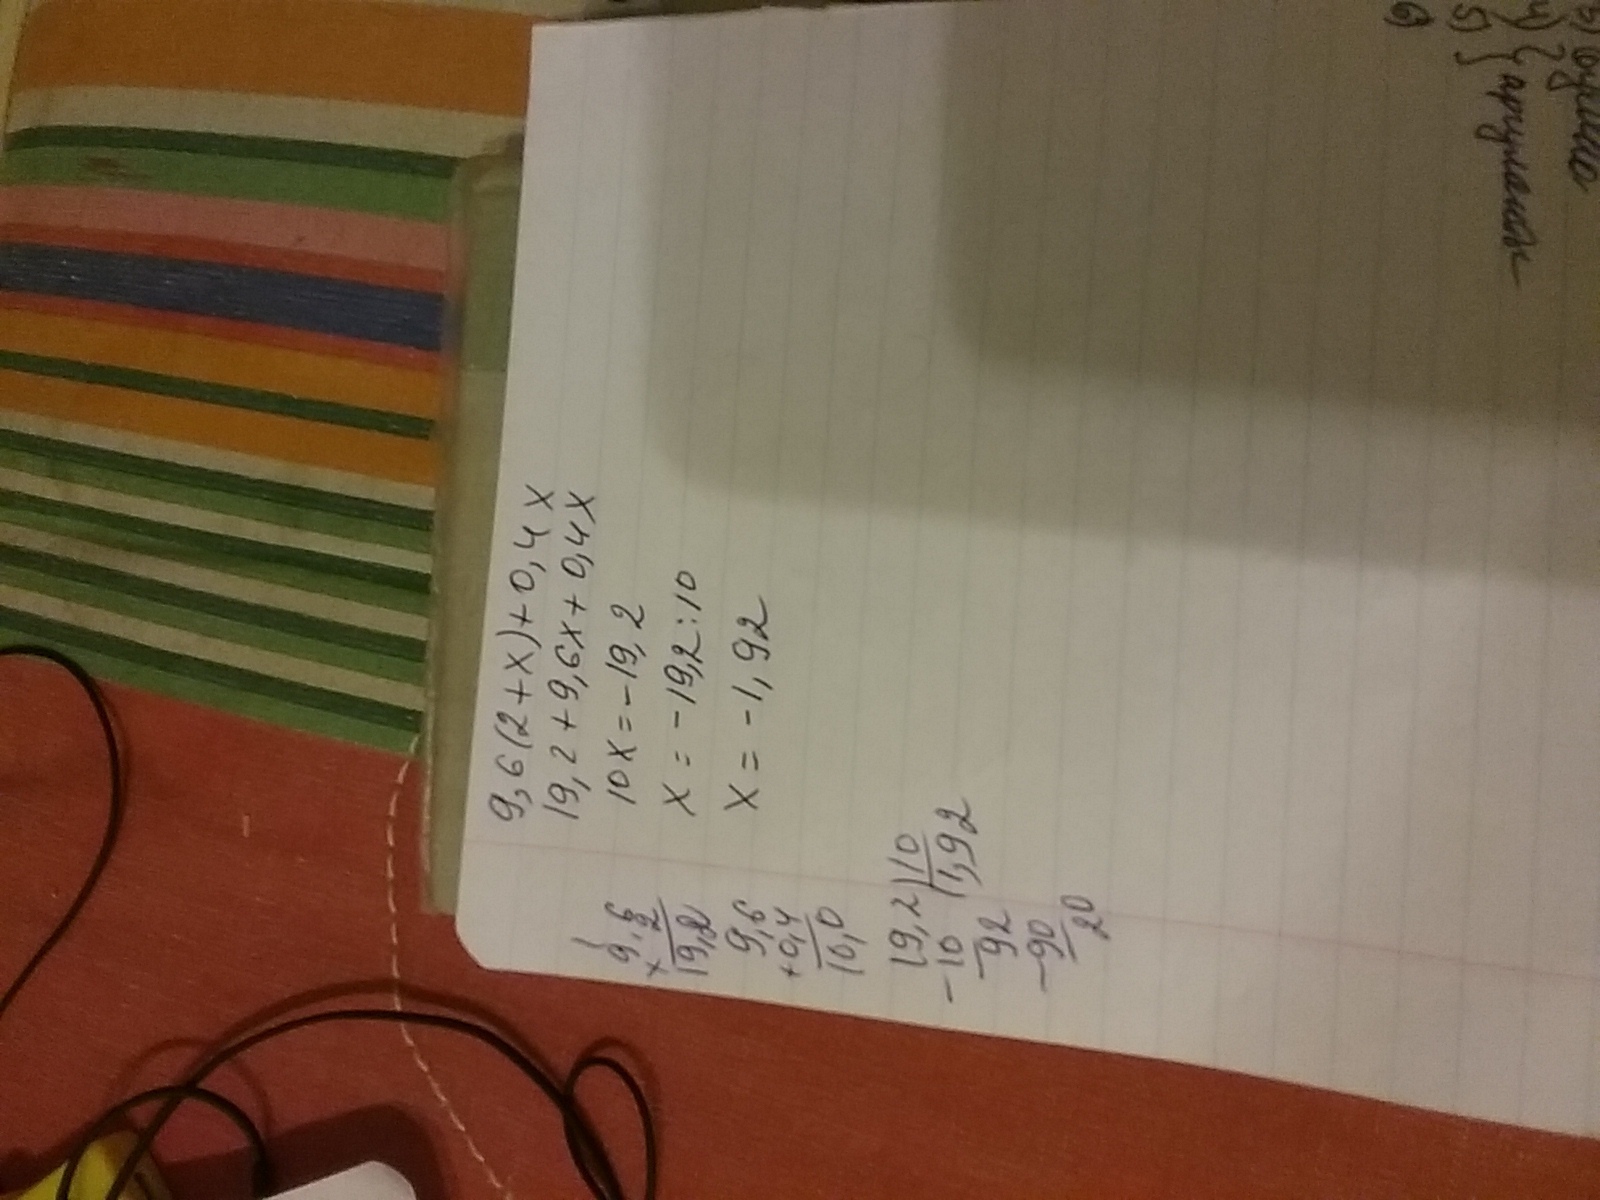 9,6(2+x)+0,4x
19,2+9,6x+0,4x
10x=-19,2
x=-19,2:10
x=-1,92
9,6
x 2
19,2
9,6
+0,4
10,0
19,2 10
-10 1,92
92
-90
20
4)
5)
6)